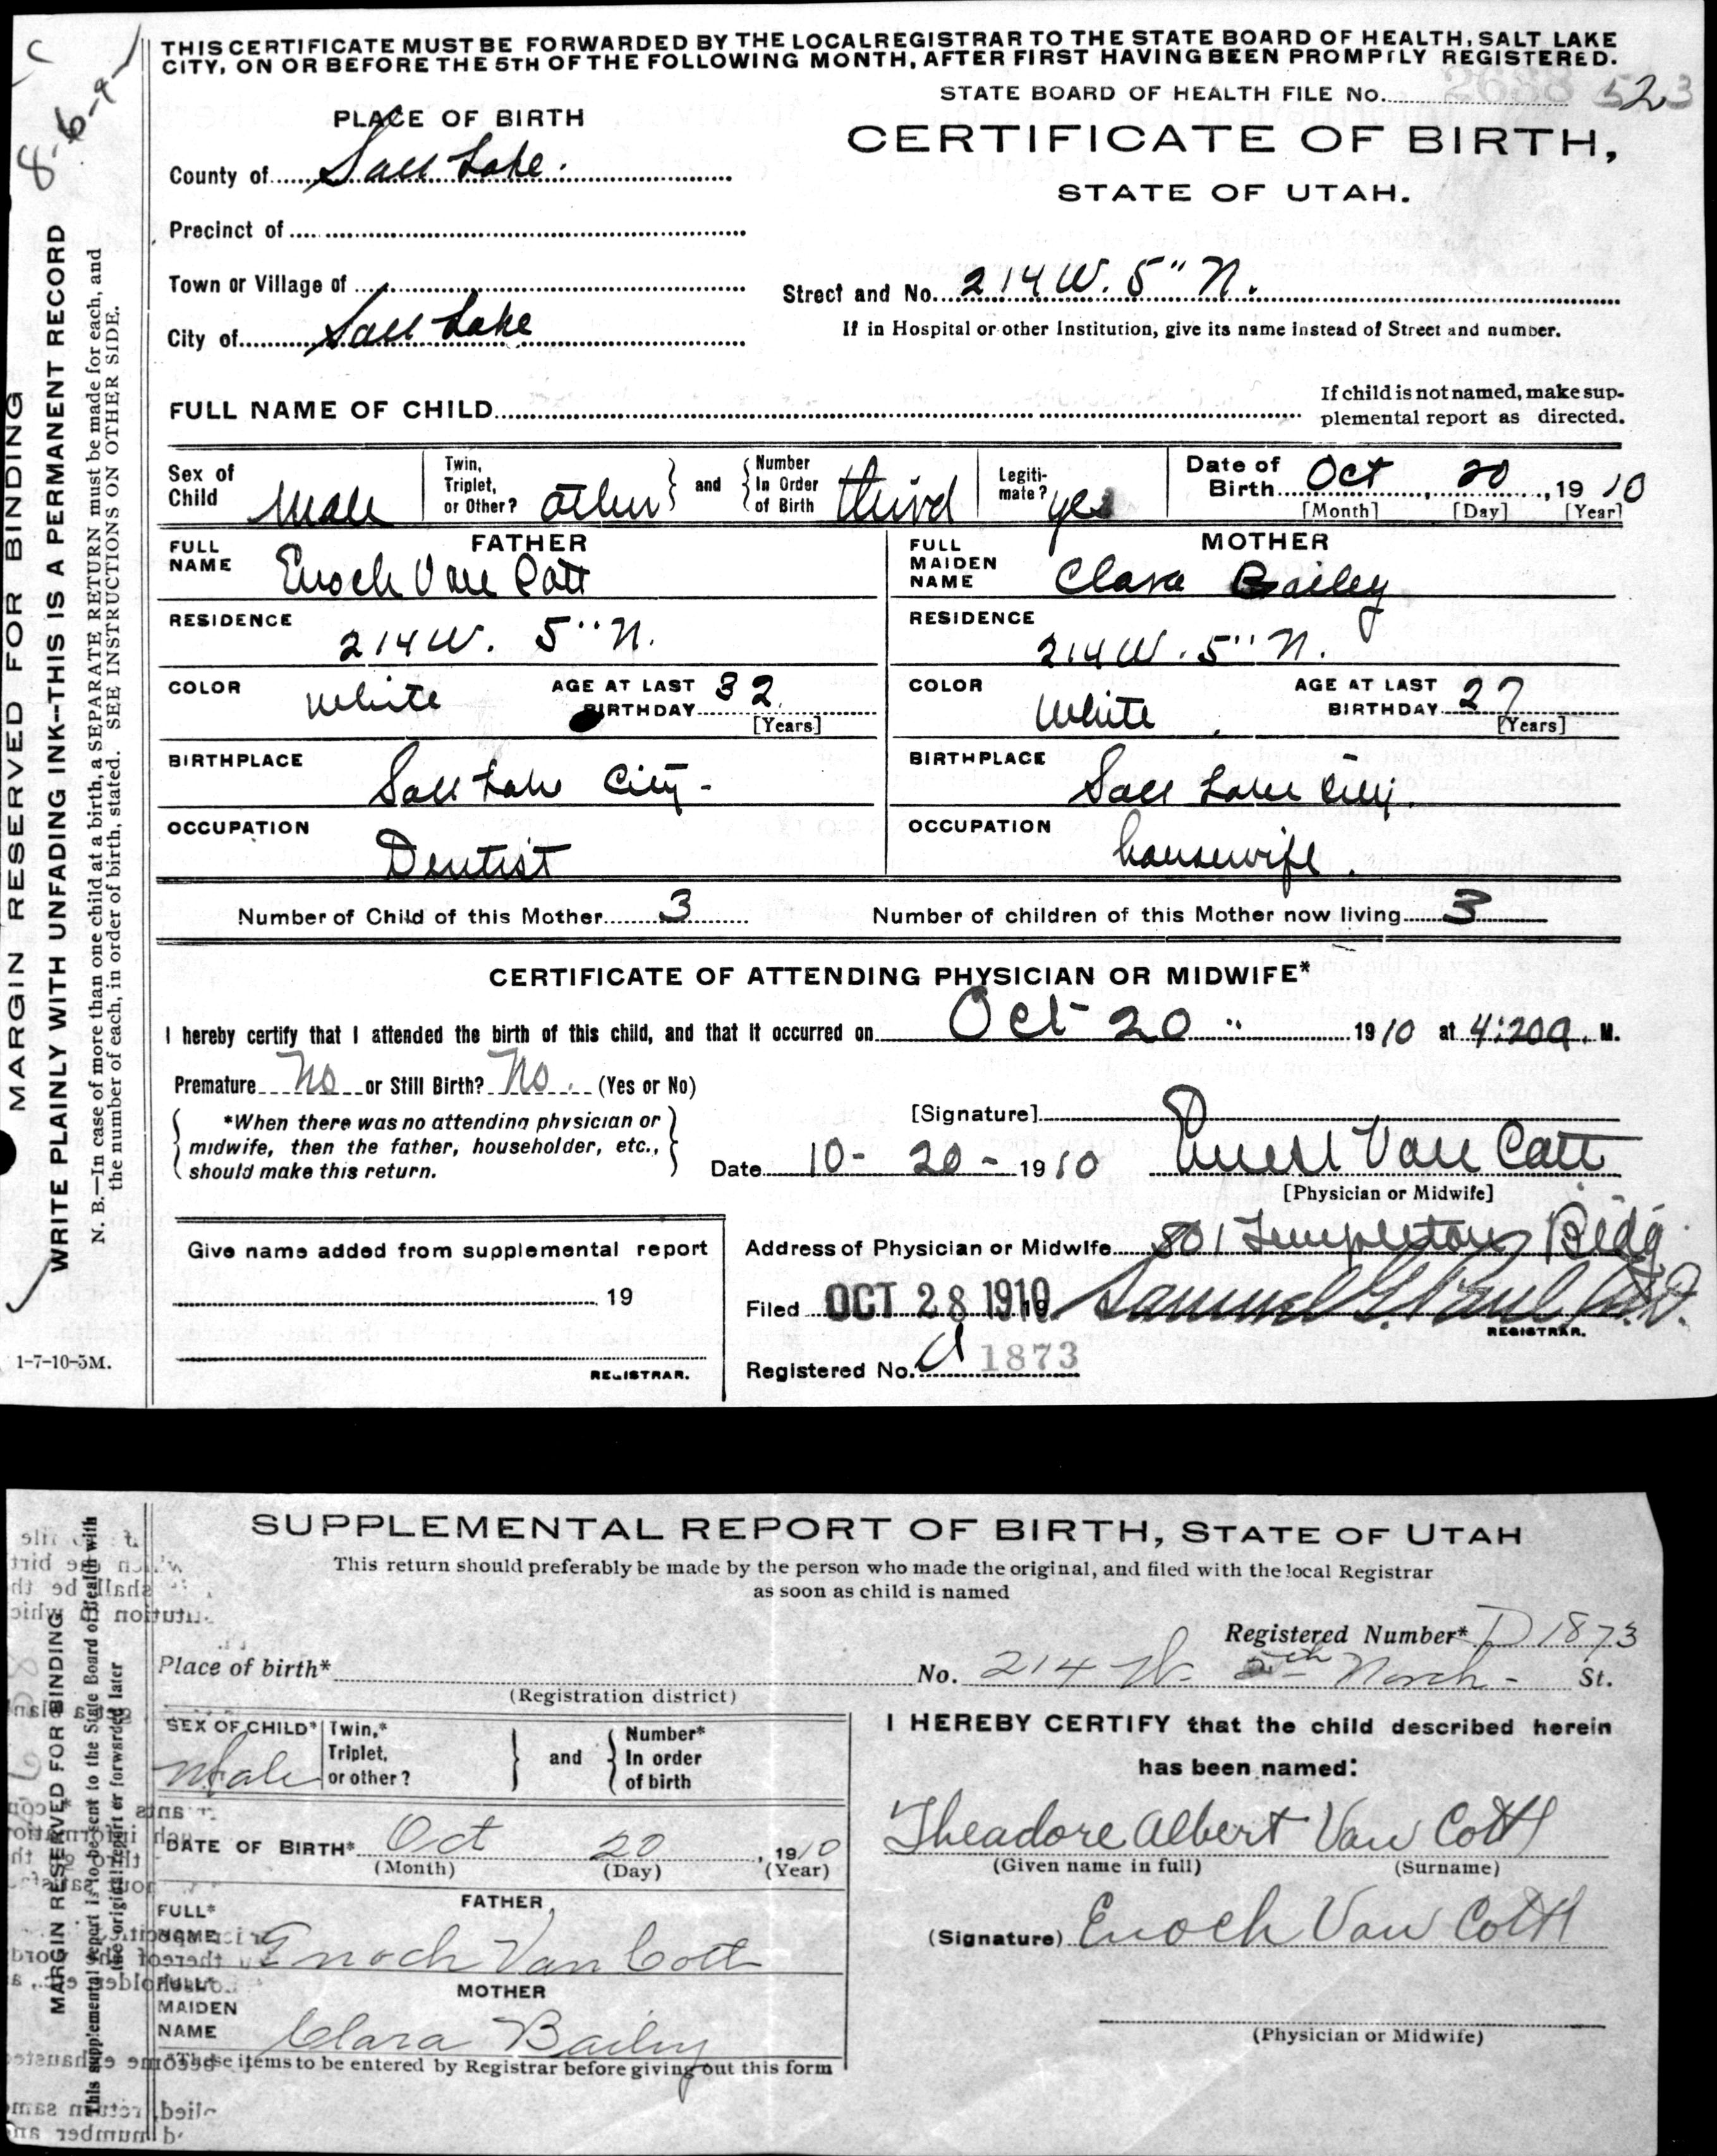 8-6-9-
MARGIN RESERVED FOR BINDING
WRITE PLAINLY WITH UNFADING INK--THIS IS A PERMANENT RECORD
N. B.—In case of more than one child at a birth, a SEPARATE RETURN must be made for each, and
the number of each, in order of birth, stated. SEE INSTRUCTIONS ON OTHER SIDE.
1-7-10-5M.
THIS CERTIFICATE MUST BE FORWARDED BY THE LOCAL REGISTRAR TO THE STATE BOARD OF HEALTH, SALT LAKE
CITY, ON OR BEFORE THE 5TH OF THE FOLLOWING MONTH, AFTER FIRST HAVING BEEN PROMPTLY REGISTERED.
STATE BOARD OF HEALTH FILE No. 2688 523
PLACE OF BIRTH
CERTIFICATE OF BIRTH,
STATE OF UTAH.
County of Salt Lake.
Precinct of
Town or Village of
Street and No. 214 W. 5" N.
City of Salt Lake
If in Hospital or other Institution, give its name instead of Street and number.
FULL NAME OF CHILD
If child is not named, make sup-
plemental report as directed.
Sex of Child Male
Twin, Triplet, or Other? other and Number In Order of Birth third
Legiti-mate? yes
Date of Birth Oct 20, 1910
[Month] [Day] [Year]
FATHER
FULL NAME Enoch Van Cott
MOTHER
FULL MAIDEN NAME Clara Bailey
RESIDENCE 214 W. 5" N.
RESIDENCE 214 W. 5" N.
COLOR White AGE AT LAST BIRTHDAY 32 [Years]
COLOR White AGE AT LAST BIRTHDAY 27 [Years]
BIRTHPLACE Salt Lake City-
BIRTHPLACE Salt Lake City.
OCCUPATION Dentist
OCCUPATION housewife.
Number of Child of this Mother 3 Number of children of this Mother now living 3
CERTIFICATE OF ATTENDING PHYSICIAN OR MIDWIFE*
I hereby certify that I attended the birth of this child, and that it occurred on Oct 20 " 1910 at 4:20 a. M.
Premature No or Still Birth? No. (Yes or No)
*When there was no attending physician or
midwife, then the father, householder, etc.,
should make this return.
[Signature]
Date 10-20-1910 Van Cott
[Physician or Midwife]
Give name added from supplemental report
19
REGISTRAR.
Address of Physician or Midwife 801 Templeton Bldg.
Filed OCT 28 1910 Samuel G. Paul M.D.
REGISTRAR.
Registered No. 1873
SUPPLEMENTAL REPORT OF BIRTH, STATE OF UTAH
This return should preferably be made by the person who made the original, and filed with the local Registrar
as soon as child is named
Registered Number* D 1873
Place of birth* No. 214 W. 5th North- St.
(Registration district)
MARGIN RESERVED FOR BINDING
This supplemental report is to be sent to the State Board of Health with
the original report or forwarded later
SEX OF CHILD* Male
Twin,* Triplet, or other? and Number* In order of birth
I HEREBY CERTIFY that the child described herein
has been named:
Theadore Albert Van Cott
(Given name in full) (Surname)
DATE OF BIRTH* Oct 20, 1910
(Month) (Day) (Year)
FATHER
FULL* NAME Enoch Van Cott
(Signature) Enoch Van Cott
MOTHER
FULL* MAIDEN NAME Clara Bailey
(Physician or Midwife)
*These items to be entered by Registrar before giving out this form